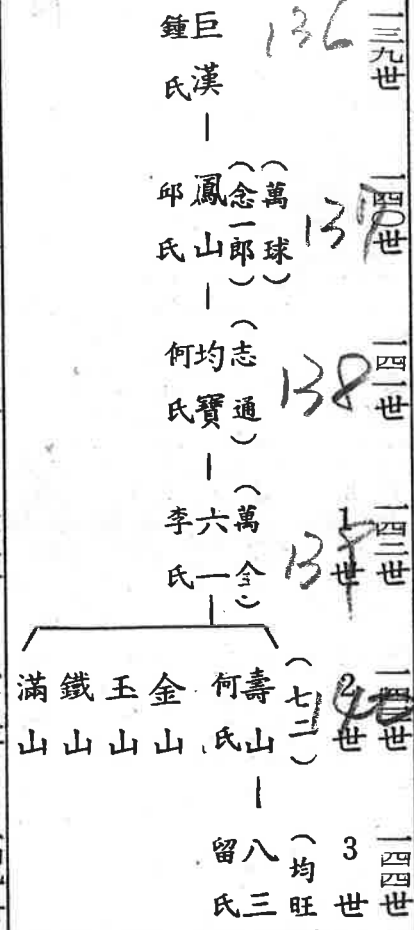 一三九世
136
巨漢
鍾氏
一四〇世
137
(萬球)
(念一郎)
鳳山
邱氏
一四一世
138
(志通)
均寶
何氏
一四二世
1世
(萬全)
六一
李氏
2世
(七二)
壽山
何氏
金山
玉山
鐵山
滿山
一四四世
3世
(均旺
八三
留氏